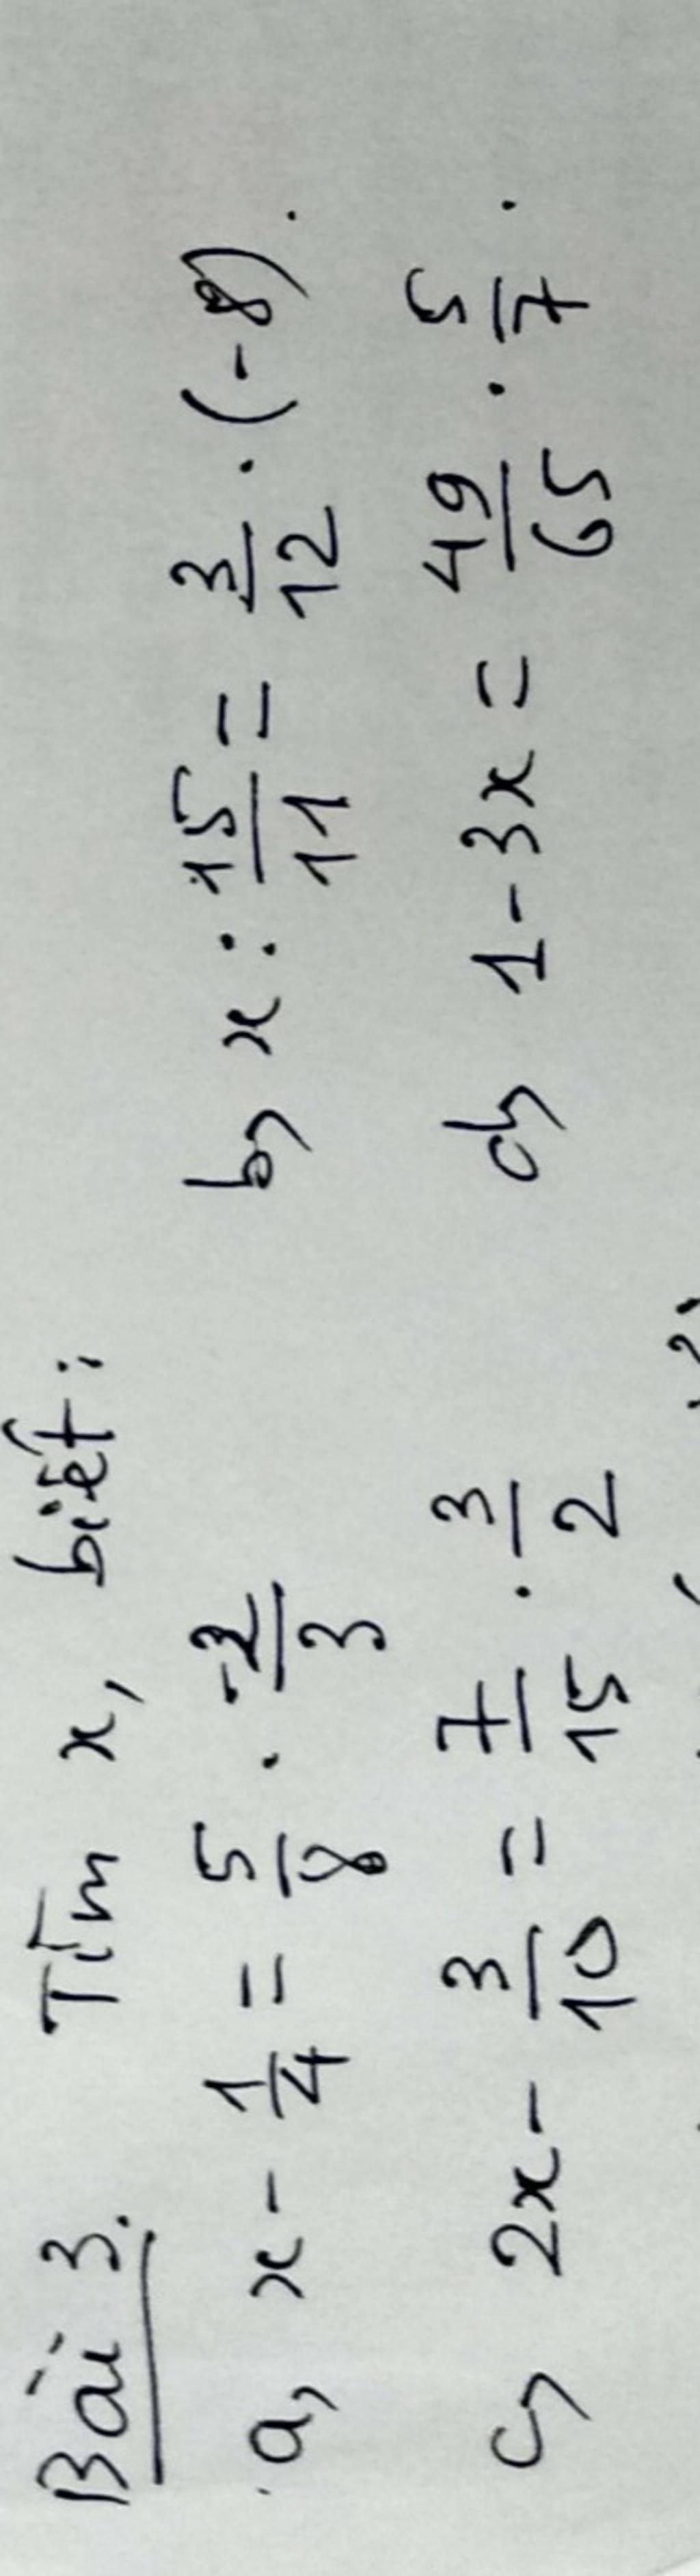 Bài 3. Tìm x, biết:
a, x - 1/4 = 5/8 · -2/3 b, x : 15/11 = 3/12 · (-8).
c, 2x - 3/10 = 7/15 · 3/2 d, 1 - 3x = 49/65 · 5/7.